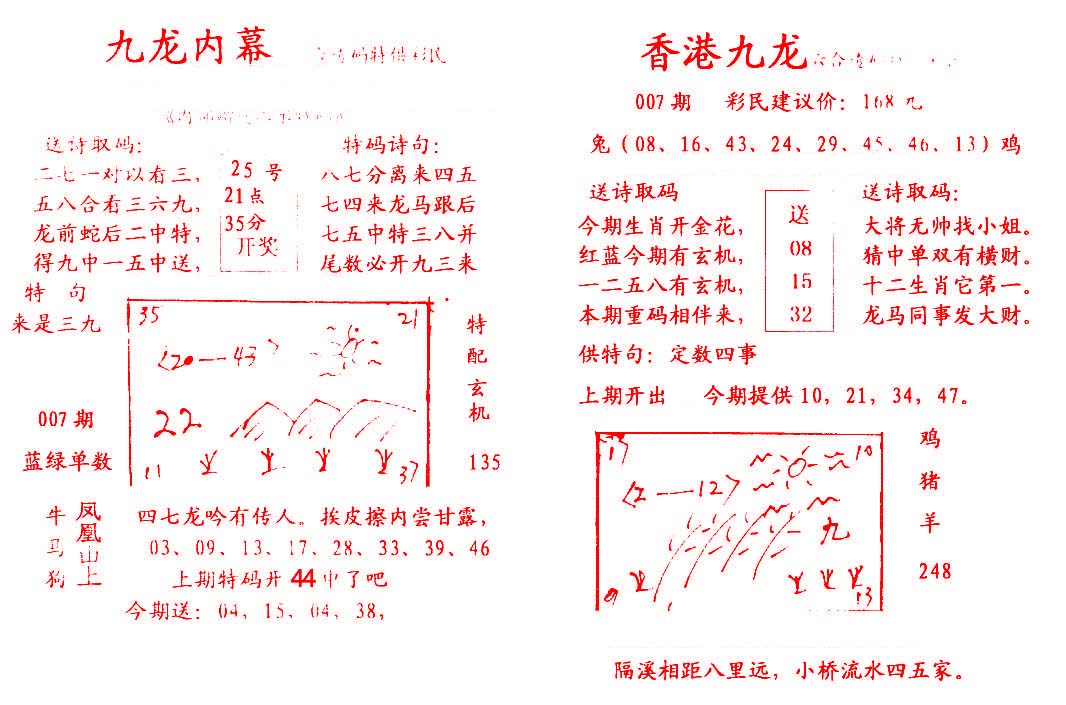 九龙内幕
送诗取码:
二七一对以看三,
五八合看三六九,
龙前蛇后二中特,
得九中一五中送,
25 号
21点
35分
开奖
特码诗句:
八七分离来四五
七四来龙马跟后
七五中特三八并
尾数必开九三来
特 句
来是三九
35
21
〈20——43〉
22
11
37
007 期
蓝绿单数
特
配
玄
机
135
牛
马
狗
凤
凰
山
上
四七龙吟有传人。挨皮擦内尝甘露,
03、09、13、17、28、33、39、46
上期特码开 44 中了吧
今期送: 04, 15, 04, 38,
香港九龙
007 期 彩民建议价: 168 元
兔 ( 08、16、43、24、29、45、46、13 ) 鸡
送诗取码
今期生肖开金花,
红蓝今期有玄机,
一二五八有玄机,
本期重码相伴来,
送
08
15
32
送诗取码:
大将无帅找小姐。
猜中单双有横财。
十二生肖它第一。
龙马同事发大财。
供特句: 定数四事
上期开出 今期提供 10, 21, 34, 47。
10
〈2——12〉
九
13
鸡
猪
羊
248
隔溪相距八里远, 小桥流水四五家。